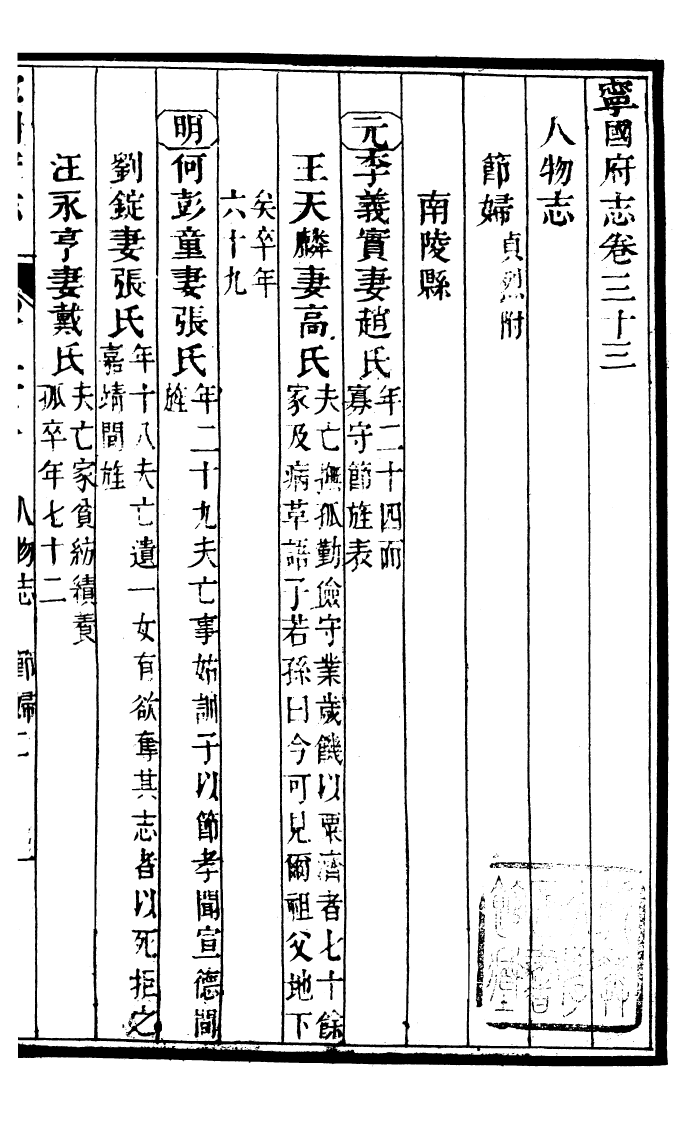 寧國府志卷三十三
人物志
節婦貞烈附
南陵縣
元李義實妻趙氏年二十四而
寡守節旌表
王天麟妻高氏夫亡撫孤勤儉守業歲饑以粟濟者七十餘
家及病革語子若孫曰今可見爾祖父地下
矣卒年
六十九
明何彭童妻張氏年二十九夫亡事姑訓子以節孝聞宣德間
旌
劉錠妻張氏年十八夫亡遺一女有欲奪其志者以死拒之
嘉靖間旌
汪永亨妻戴氏夫亡家貧紡績養
孤卒年七十二
人物志 節婦二